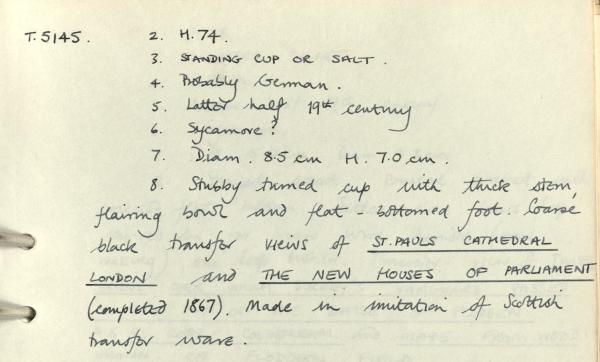 T.5145. 2. H.74.
3. STANDING CUP OR SALT.
4. Probably German.
5. Latter half 19th century
6. Sycamore?
7. Diam. 8.5 cm H. 7.0 cm.
8. Stubby turned cup with thick stem,
flairing bowl and flat-bottomed foot. Coarse
black transfer views of ST. PAULS CATHEDRAL
LONDON and THE NEW HOUSES OF PARLIAMENT
(completed 1867). Made in imitation of Scottish
transfer ware.